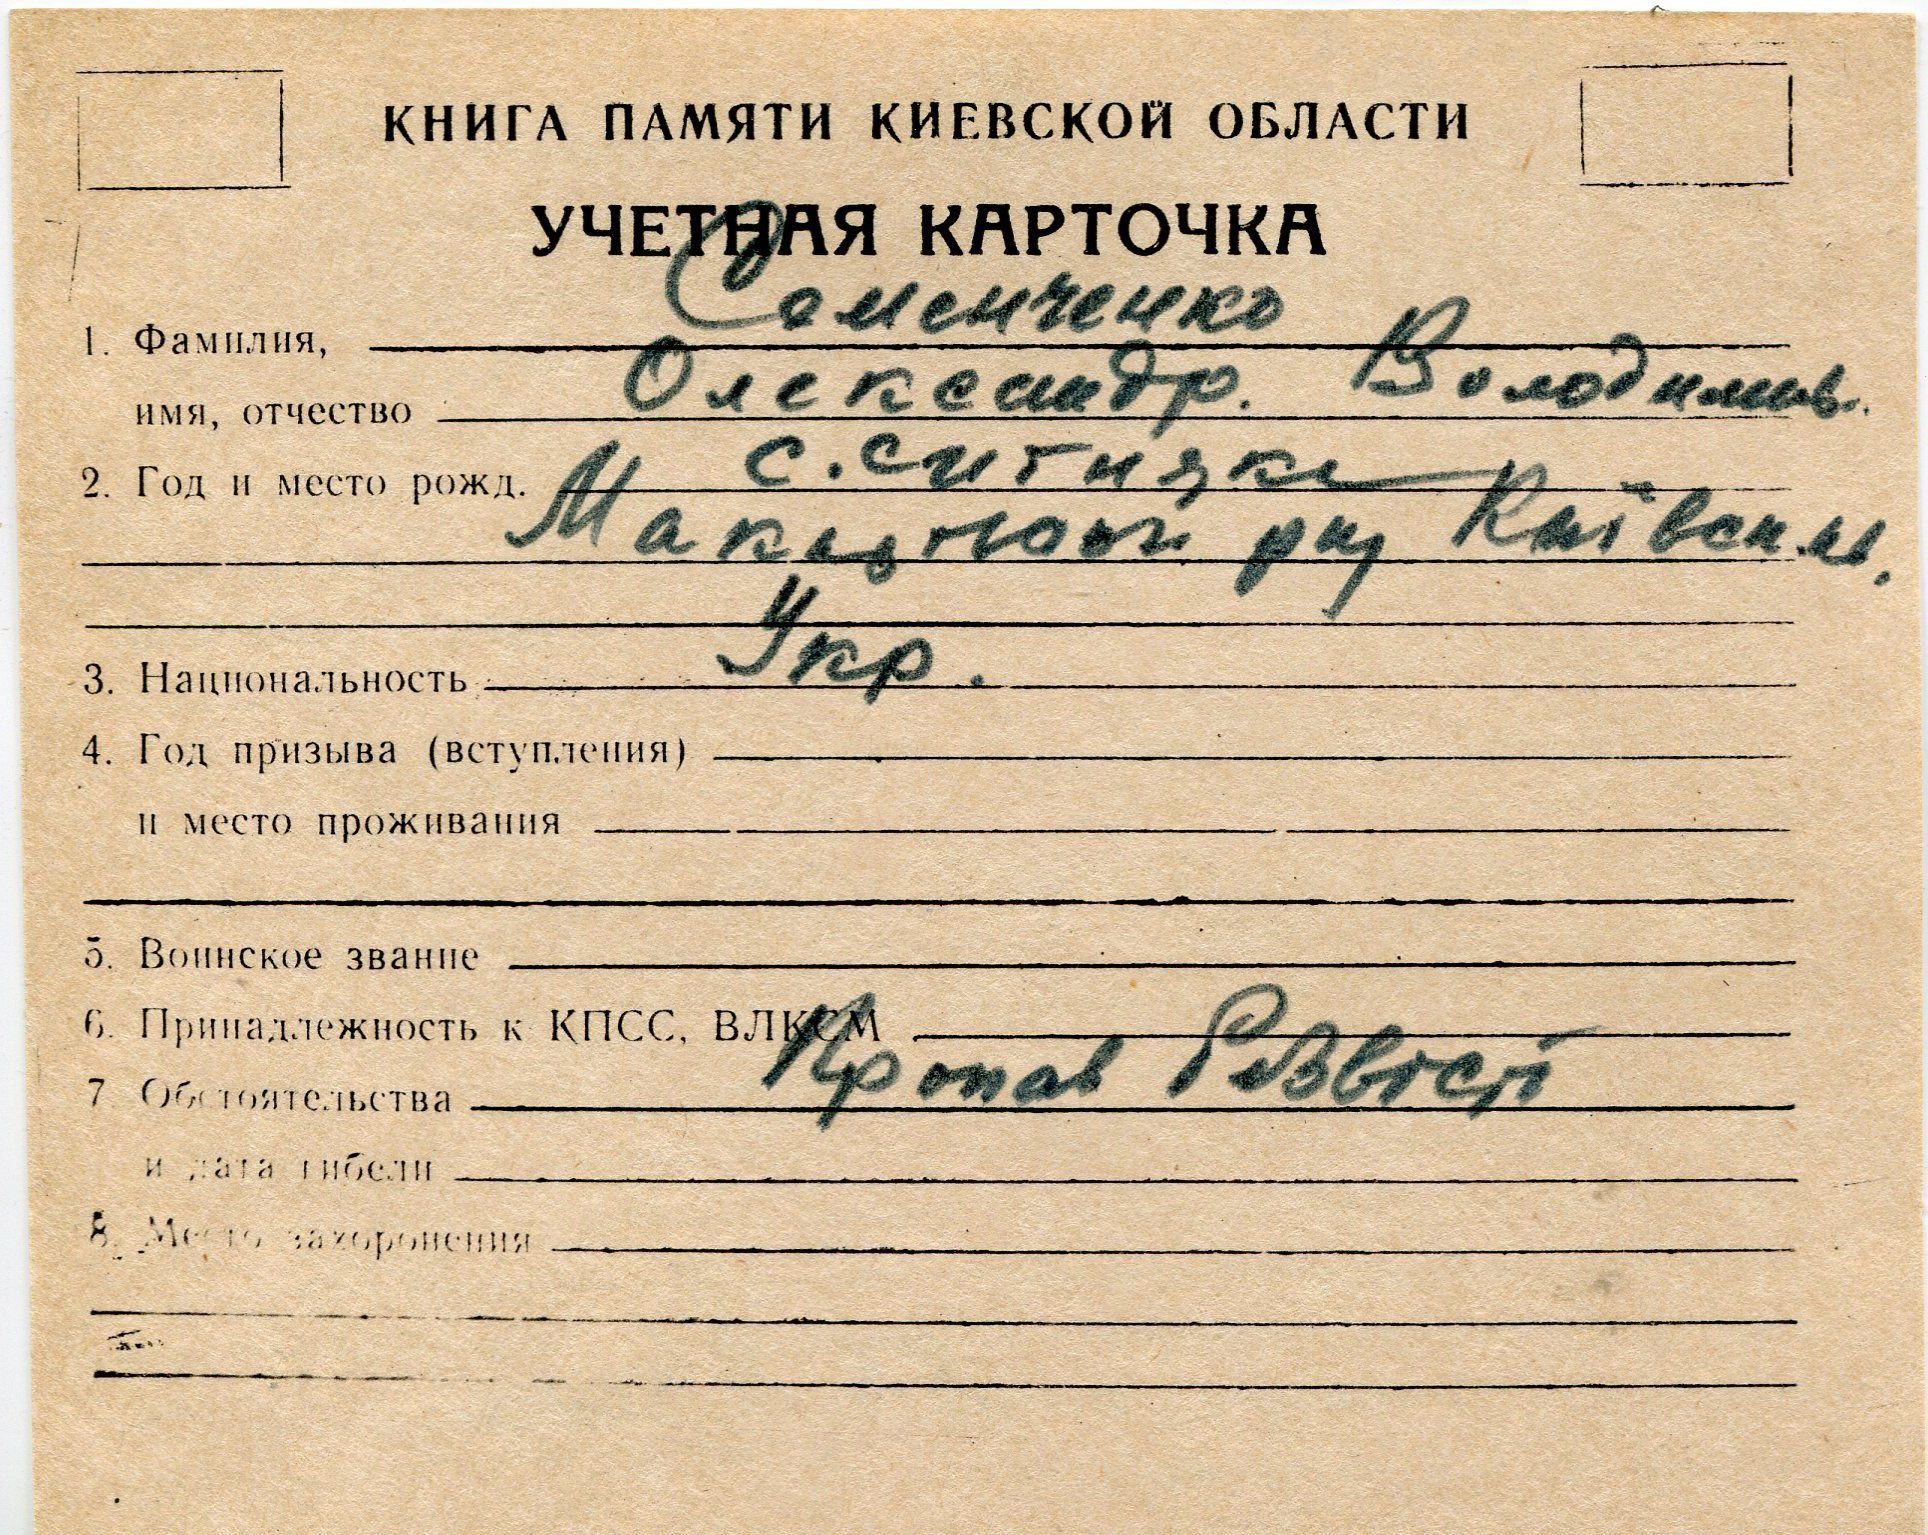 КНИГА ПАМЯТИ КИЕВСКОЙ ОБЛАСТИ
УЧЕТНАЯ КАРТОЧКА
Семенченко
1. Фамилия,
Олександр. Володимир.
имя, отчество
с. Ситняки
2. Год и место рожд.
Макарівськ рну Київськ
Укр.
3. Национальность
4. Год призыва (вступления)
и место проживания
5. Воинское звание
6. Принадлежность к КПСС, ВЛКСМ
Пропав безвісті
7 Обстоятельства
и дата гибели
8. Место захоронения